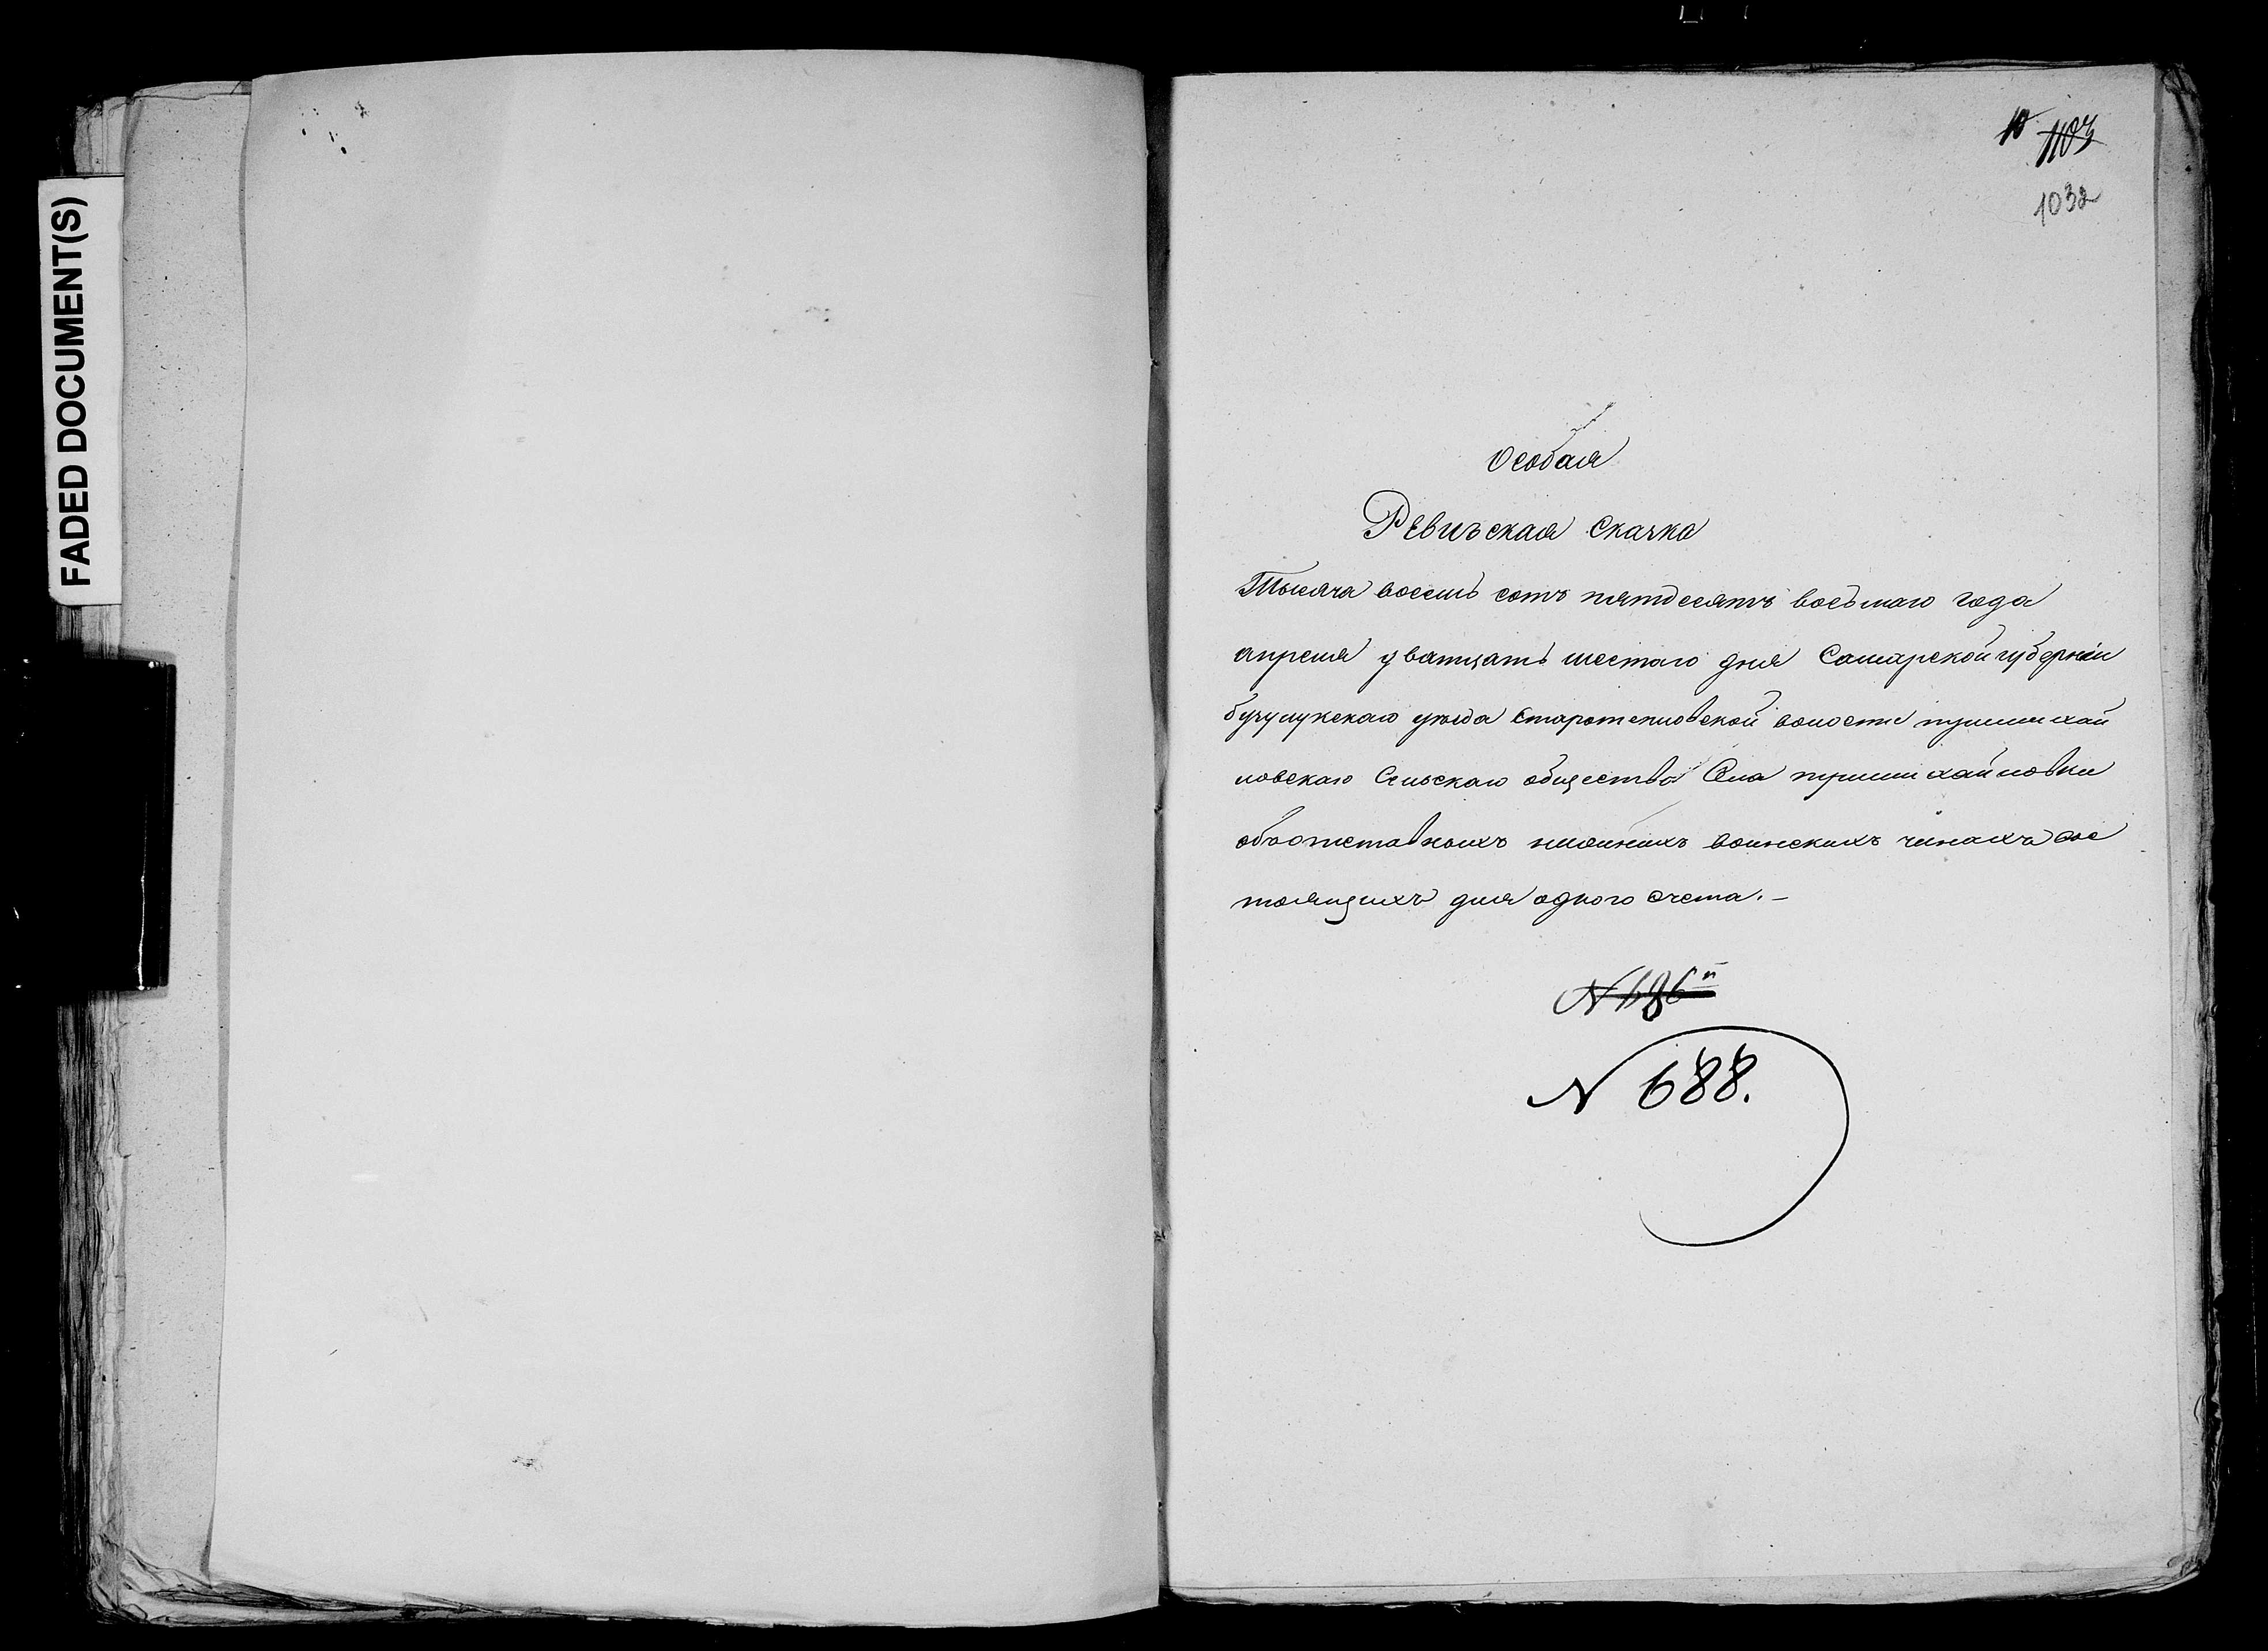 FADED DOCUMENT(S)
10 1103
1032
Особая
Ревиъская Сказка
Тысяча восемь сотъ пятдесятъ восьмаго года
апреля дватцать шестаго дня Самарской губернiи
бузулукскаго уезда Старотепловской волости
ловскаго Сельскаго общества Села
объотставныхъ нижнихъ воинскихъ чинахъ сос
тоящихъ для одного счета.-
N 688.